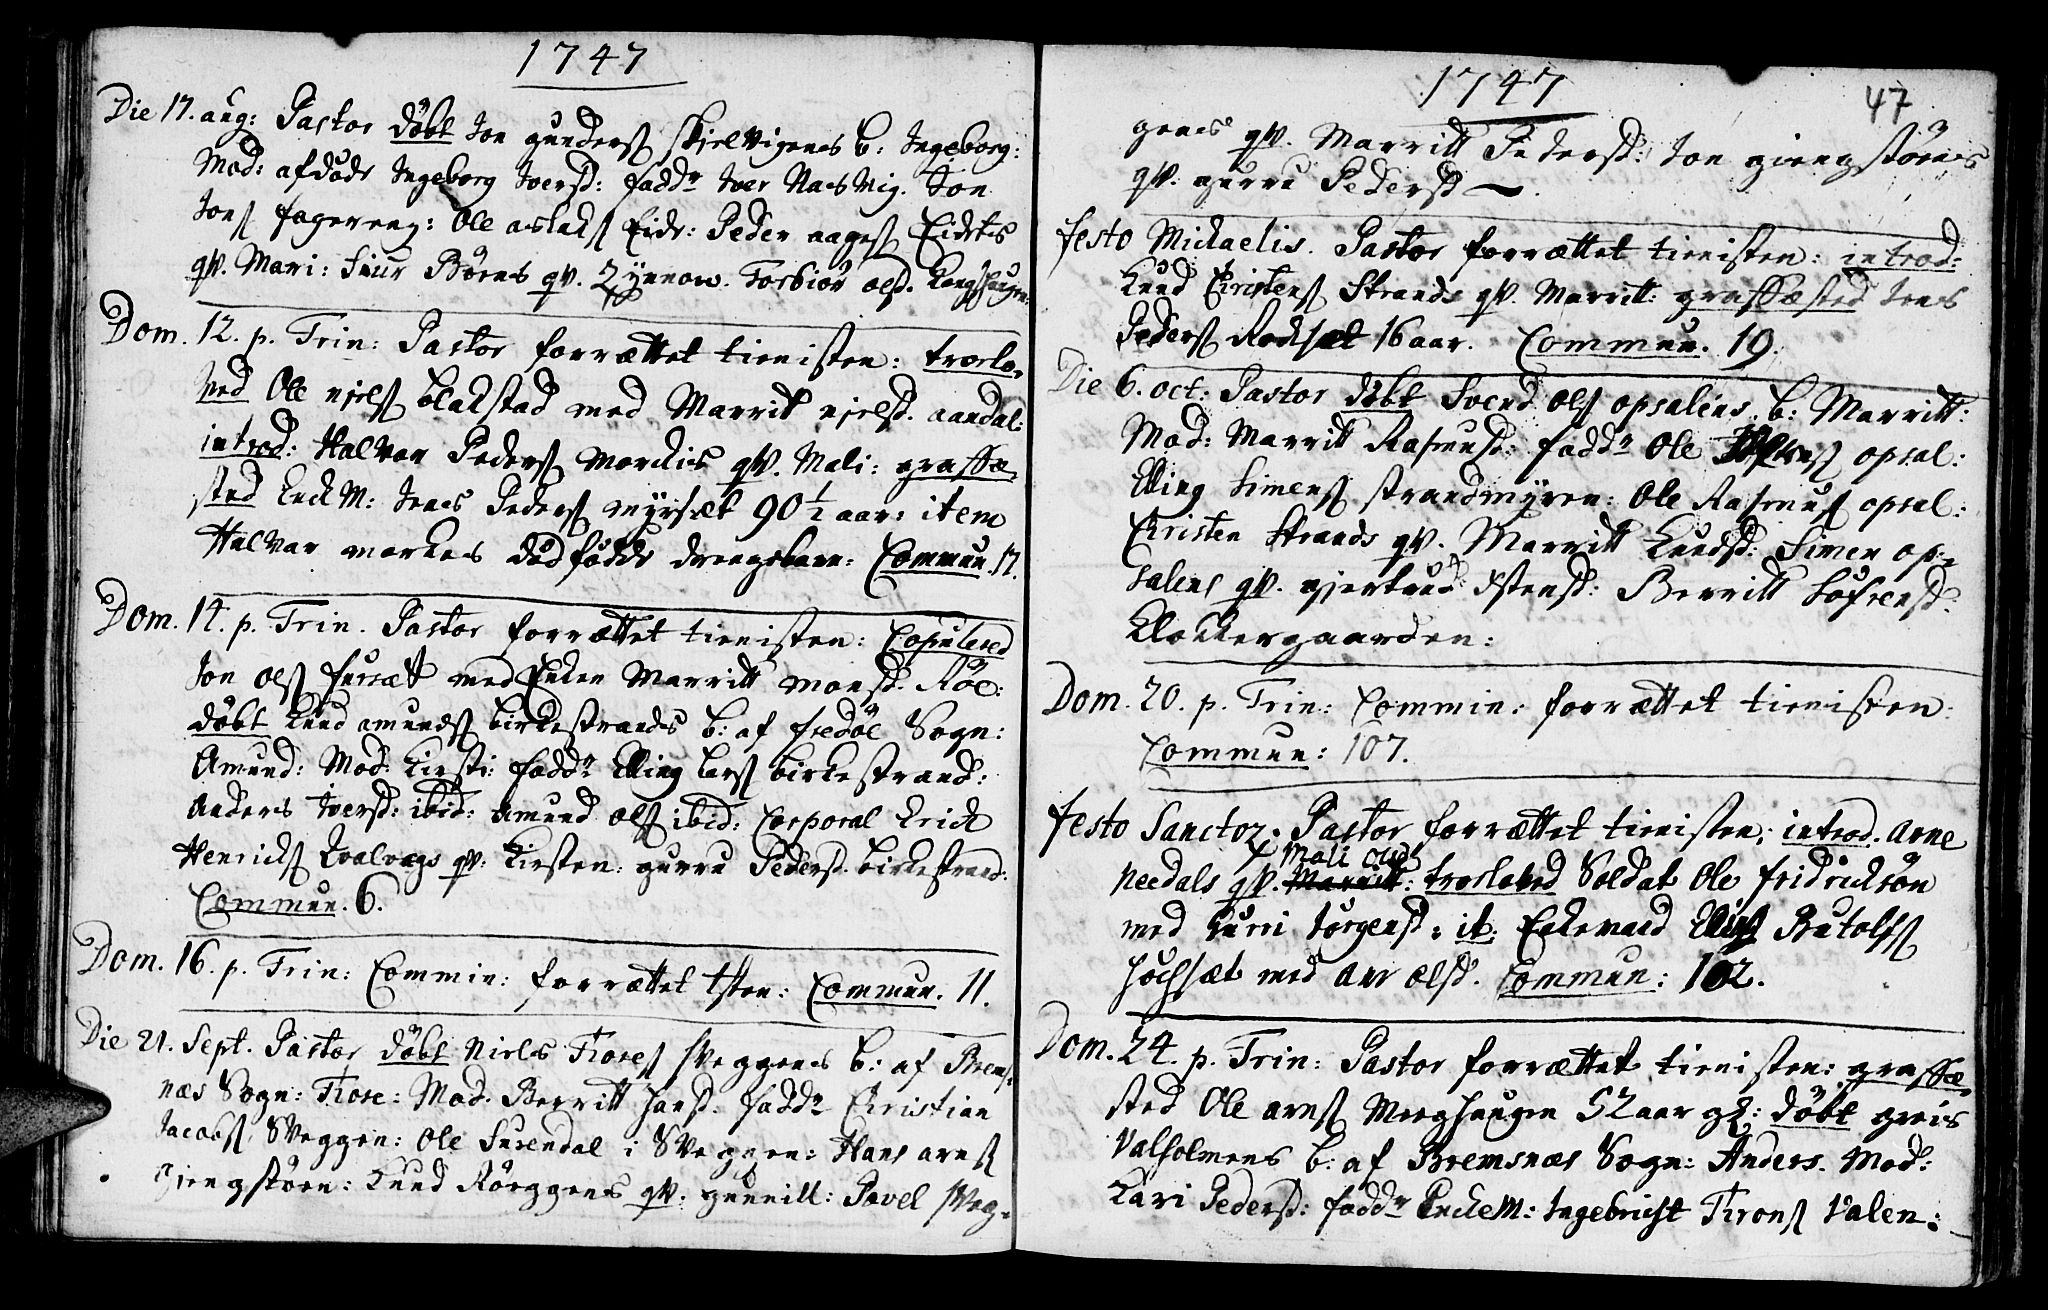 1747
Die 17. aug: Pastor döbt Jon gunders Skjelvigens b: Ingeborg:
Mod: afdöde Ingeborg Iversd: fadd: Iver Næsvig. Jon
Jons fagereng: Ole aslaks Eide: Peder aages Eidets
qv. Mari: Siur Börns qv. Synnow. Torbiör olsd.
Dom. 12. p. Trin: Pastor forrættet tienisten: trolo-
ved Ole niels blakstad med Marrit nielsd. aandal:
introd: Halvor Peders morchis qv. Mali: graffæ-
sted Enck M: Jens Peders myrsæt 90 1/2 aar: item
Halvor morches dödfödde drengebarn: Commun. 17.
Dom. 14. p. Trin. Pastor forrættet tienisten: Copulered
Jon ols fursæt med Enken Marritt monsd. Röe:
döbt Knud amunds birkestrands b: af fredöe Sogn:
Amund: Mod: Kirsti: fadd: Elling lars birkestrand:
Anders Iversd: ibid: Amund ols ibid: Corporal Erich
Henrichs Qvalvogs qv: Kirsten: gurru Pedersd. birkestrand:
Commun. 6.
Dom. 16. p. Trin: Commin: forrættet tsten: Commun. 11.
Die 21. Sept. Pastor döbt Niels Tores Sveggens b: af Brems-
næs Sogn: Tore: Mod. Berritt hansd. fadd: Christian
Jacobs Sveggen: Ole Surendal i Sveggen: Hans arns
giengstöen: Knud Röeggens qv: gunnill: Povel Sveg-
1747
47
gens qv. Marritt Pedersd: Jon giengstöens
qv. gurru Pedersd.
festo Michaelis. Pastor forrættet tienisten: introd:
Knud Christens Strands qv. Marritt: graffæsted Jens
Peders Rodsæt 16 aar. Commun. 19.
Die 6. oct: Pastor döbt Svend ols opsalens b: Marritt:
Mod: Marritt Rasmusd: fadd: Ole opsal:
Elling Simens strandmyren: Ole Rasmus opsal:
Christen Strands qv. Marritt Knudsd: Simen op-
salens qv. gjertrud Ostensd: Berritt Tofrensd.
Klockergaarden:
Dom. 20. p. Trin: Commin: forrættet tienisten:
Commun: 107.
festo Sanctor. Pastor forrættet tienisten: introd. Arne
Needals qv. Marritt: Mali olsd troloved Soldat Ole fridrichsön
med Kurri Jörgensd: it. Enkemand Elias Rutolfs
höchsæt med Ane olsd. Commun: 102.
Dom. 24. p. Trin: Pastor forrættet tienisten: graffæ-
sted Ole arns Meeghaugen 52 aar gl: döbt greis
Valholmens b: af Bremsnæs Sogn: Anders. Mod:
Kari Pedersd: fadd: Enck M: Ingebricht Trons Valen: